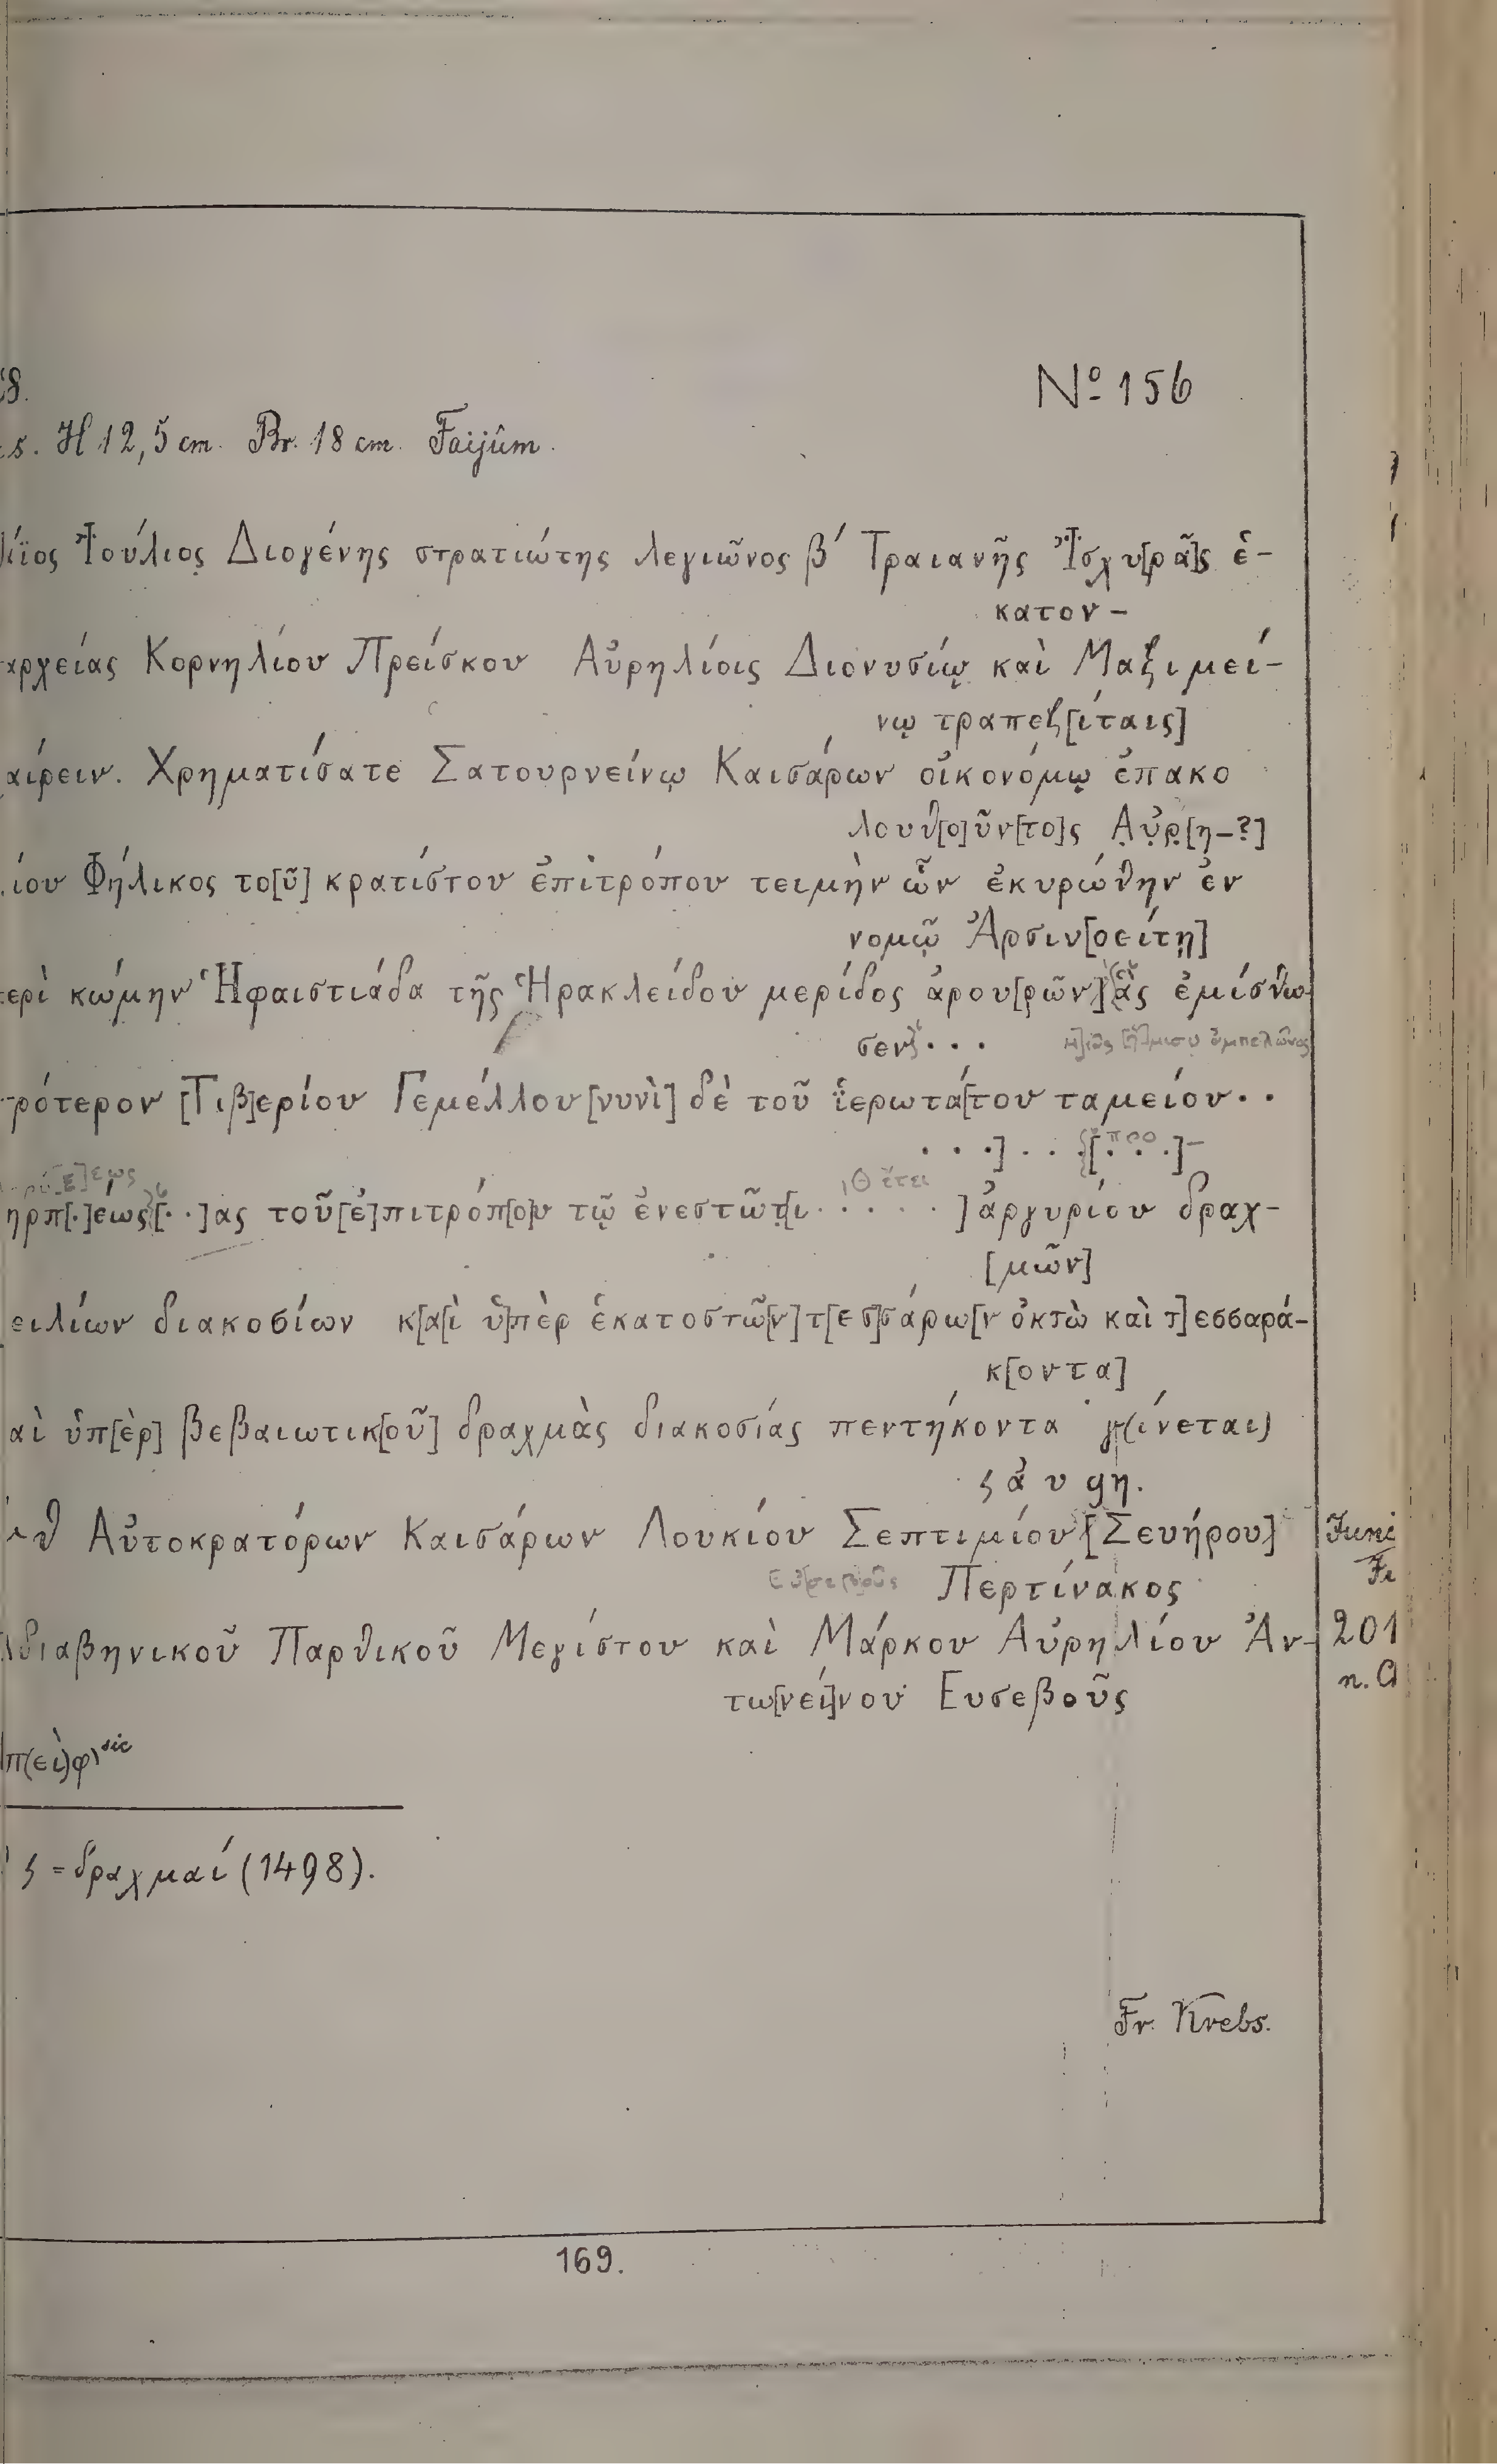 8.
Nº 156
s. H 12,5 cm. Br. 18 cm. Faijûm.
ϊος Ἰούλιος Διογένης στρατιώτης λεγιῶνος β´ Τραιανῆς Ἰσχυ[ρᾶ]ς ἑ-
κατον-
αρχείας Κορνηλίου Πρείσκου Αὐρηλίοις Διονυσίῳ καὶ Μαξιμεί-
νῳ τραπεζ[ίταις]
αίρειν. Χρηματίσατε Σατουρνείνῳ Καισάρων οἰκονόμῳ ἐπακο
λουθ[ο]ῦν[το]ς Αὐρ[η-?]
ίου Φήλικος το[ῦ] κρατίστου ἐπιτρόπου τειμὴν ὧν ἐκυρώθην ἐν
νομῷ Ἀρσιν[οείτῃ]
ερὶ κώμην Ἡφαιστιάδα τῆς Ἡρακλείδου μερίδος ἀρου[ρῶν] ἃς ἐμίσθω
σεν . . .
[ἥ]μισυ ἀμπελῶνος
ρότερον [Τιβ]ερίου Γεμέλλου [νυνὶ] δὲ τοῦ ἱερωτά[του ταμείου . .
. . .] . . [. . .]-
προ
εως
ηρπ[.]έως [. .]ας τοῦ [ἐ]πιτρόπ[ο]υ τῷ ἐνεστῶτ[ι . . . . . ] ἀργυρίου δραχ-
ιθ ἔτει
[μῶν]
ειλίων διακοσίων κ[α]ὶ ὑ]πὲρ ἑκατοστῶ[ν] τ[εσ]σάρω[ν ὀκτὼ καὶ τ]εσσαρά-
κ[οντα]
αὶ ὑπ[ὲρ] βεβαιωτικ[οῦ] δραχμὰς διακοσίας πεντήκοντα γ(ίνεται)
ς ἀ υ ϙη.
θ Αὐτοκρατόρων Καισάρων Λουκίου Σεπτιμίου [Σευήρου]
Εὐσεβοῦς Περτίνακος
διαβηνικοῦ Παρθικοῦ Μεγίστου καὶ Μάρκου Αὐρηλίου Ἀν-
τω[νεί]νου Ευσεβοῦς
π(εὶ)φ) sic
Juni
201
n. C
ς = δραχμαί (1498).
Fr. Krebs.
169.